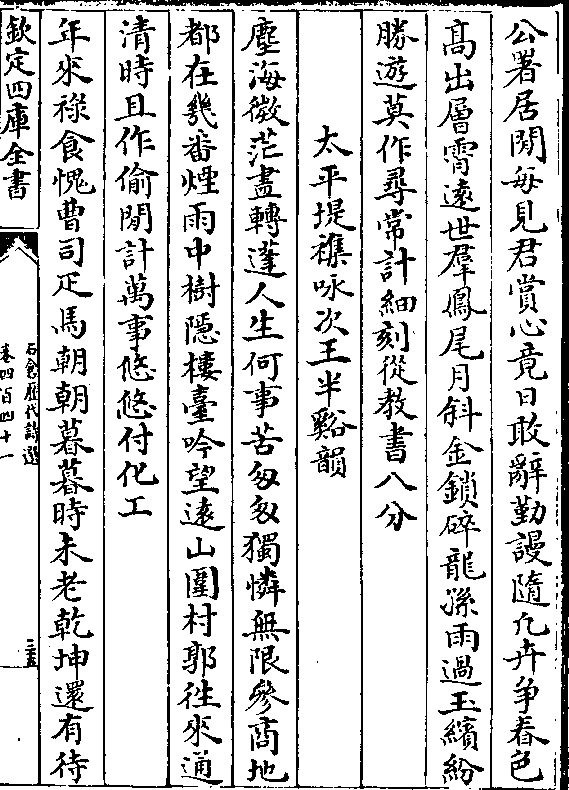 公署居閒每見君賞心竟日敢辭勤謾隨凡卉争春色
髙出層霄遠世羣鳳尾月斜金鎖碎龍孫雨過玉繽紛
勝遊莫作尋常計細刻從教書八分
太平堤襍咏次王半谿韻
塵海微茫盡轉蓬人生何事苦匆匆獨憐無限參啇地
都在幾番煙雨中樹隠樓臺吟望逺山圍村郭徃來通
清時且作偷閒計萬事悠悠付化工
年來禄食愧曹司疋馬朝朝暮暮時未老乾坤還有待
欽定四庫全書
石倉歷代詩選
卷四百四十一